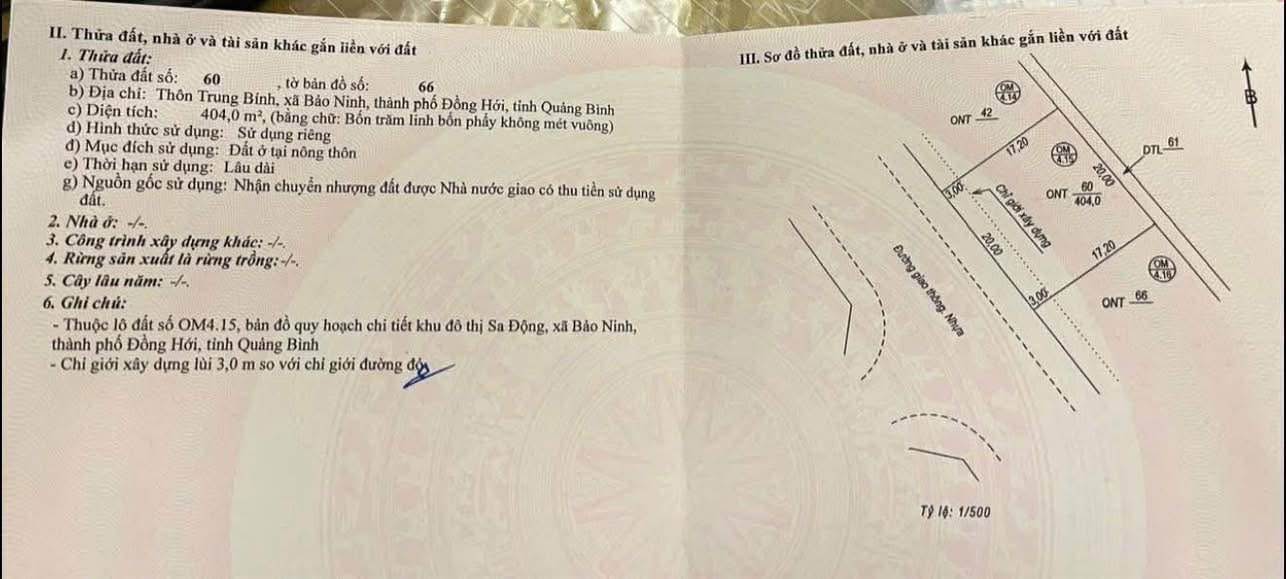 II. Thửa đất, nhà ở và tài sản khác gắn liền với đất
1. Thửa đất:
a) Thửa đất số: 60 , tờ bản đồ số: 66
b) Địa chỉ: Thôn Trung Bính, xã Bảo Ninh, thành phố Đồng Hới, tỉnh Quảng Bình
c) Diện tích: 404,0 m², (bằng chữ: Bốn trăm linh bốn phẩy không mét vuông)
d) Hình thức sử dụng: Sử dụng riêng
đ) Mục đích sử dụng: Đất ở tại nông thôn
e) Thời hạn sử dụng: Lâu dài
g) Nguồn gốc sử dụng: Nhận chuyển nhượng đất được Nhà nước giao có thu tiền sử dụng
đất.
2. Nhà ở: -/-.
3. Công trình xây dựng khác: -/-.
4. Rừng sản xuất là rừng trồng: -/-.
5. Cây lâu năm: -/-.
6. Ghi chú:
- Thuộc lô đất số OM4.15, bản đồ quy hoạch chi tiết khu đô thị Sa Động, xã Bảo Ninh,
thành phố Đồng Hới, tỉnh Quảng Bình
- Chỉ giới xây dựng lùi 3,0 m so với chỉ giới đường đỏ
III. Sơ đồ thửa đất, nhà ở và tài sản khác gắn liền với đất
B
OM
4.14
ONT 42
17,20
OM
4.15
DTL 61
20,00
3,00
Chỉ giới xây dựng
ONT 60
404,0
20,00
17,20
OM
4.16
3,00
ONT 66
Đường giao thông, Nhựa
Tỷ lệ: 1/500